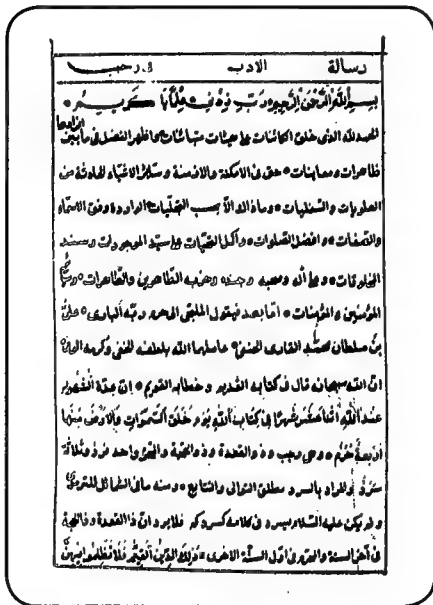 رسالة الادب في رجب
بسم الله الرحمن الرحيم رب زدني علما يا كريم
الحمد لله الذي خلق الكائنات على هيئات متباينات واظهر الفضل في ما بين افرادها
ظاهرات ومعاينات حتى في الامكنة والازمنة وسائر الاشياء الحادثة من
العلويات والسفليات وما ذاك الا بحسب التجليات الواردة وفق الاسماء
والصفات وافضل الصلوات واكمل التحيات على سيد الموجودات وسند
المخلوقات وعلى آله وصحبه وجنده وحزبه الطاهرين والطاهرات وسائر
المؤمنين والمؤمنات اما بعد فيقول الملتجي الى حرم ربه الباري علي
بن سلطان محمد القاري الحنفي عاملهما الله بلطفه الخفي وكرمه الوفي
ان الله سبحانه قال في كتابه القديم وخطابه القويم ان عدة الشهور
عند الله اثنا عشر شهرا في كتاب الله يوم خلق السموات والارض منها
اربعة حرم وهي رجب وذو القعدة وذو الحجة والمحرم واحد فرد وثلاثة
سرد والمراد بالسرد مطلق التوالى والتتابع ومنه ما في الشمائل للترمذي
ولم يكن عليه السلام يسرد في كلامه كسردكم فلا يرد ان ذا القعدة وذا الحجة
في آخر السنة والمحرم في اول السنة الاخرى ذلك الدين القيم فلا تظلموا فيهن